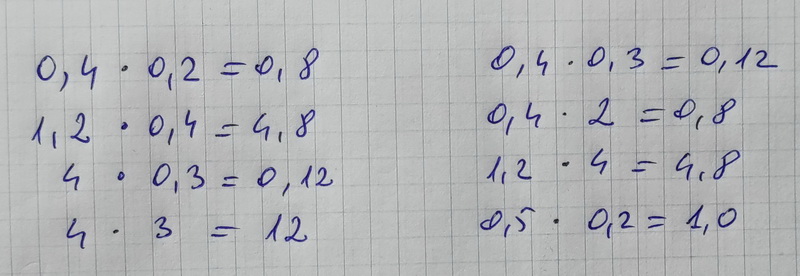 0,4 · 0,2 = 0,8
1,2 · 0,4 = 4,8
4 · 0,3 = 0,12
4 · 3 = 12
0,4 · 0,3 = 0,12
0,4 · 2 = 0,8
1,2 · 4 = 4,8
0,5 · 0,2 = 1,0